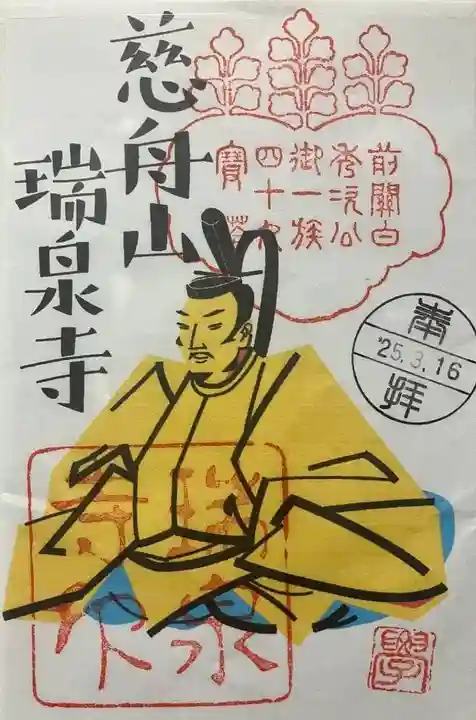 慈舟山
瑞泉寺
前關白
秀次公
御一族
四十九
寶塔
奉拝
'25.3.16